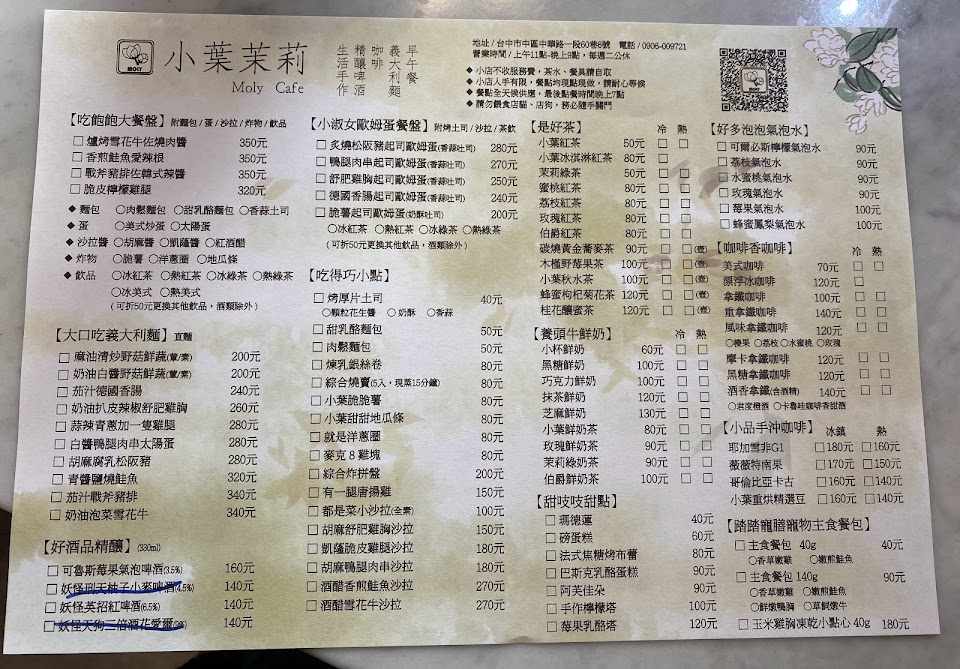 MOLY
小葉茉莉
Moly Cafe
早午餐
義大利麵
咖啡
精釀啤酒
生活手作
地址 / 台中市中區中華路一段60巷6號 電話 / 0906-009721
營業時間 / 上午11點-晚上9點，每週二公休
◆ 小店不收服務費，茶水、餐具請自取
◆ 小店人手有限，餐點均現點現做，請耐心等候
◆ 餐點全天候供應，最後點餐時間晚上7點
◆ 請勿餵食店貓、店狗，務必隨手關門
【吃飽飽大餐盤】附麵包/蛋/沙拉/炸物/飲品
□ 爐烤雪花牛佐燒肉醬 350元
□ 香煎鮭魚愛辣根 350元
□ 戰斧豬排佐韓式辣醬 350元
□ 脆皮檸檬雞腿 320元
◆ 麵包 ○肉鬆麵包 ○甜乳酪麵包 ○香蒜土司
◆ 蛋 ○美式炒蛋 ○太陽蛋
◆ 沙拉醬 ○胡麻醬 ○凱薩醬 ○紅酒醋
◆ 炸物 ○脆薯 ○洋蔥圈 ○地瓜條
◆ 飲品 ○冰紅茶 ○熱紅茶 ○冰綠茶 ○熱綠茶
○冰美式 ○熱美式
(可折50元更換其他飲品，酒類除外)
【大口吃義大利麵】直麵
□ 麻油清炒野菇鮮蔬(葷/素) 200元
□ 奶油白醬野菇鮮蔬(葷/素) 200元
□ 茄汁德國香腸 240元
□ 奶油扒皮辣椒舒肥雞胸 260元
□ 蒜辣青蔥加一隻雞腿 280元
□ 白醬鴨腿肉串太陽蛋 280元
□ 胡麻腐乳松阪豬 280元
□ 青醬鹽燒鮭魚 320元
□ 茄汁戰斧豬排 340元
□ 奶油泡菜雪花牛 340元
【好酒品精釀】(330ml)
□ 可魯斯莓果氣泡啤酒(3.5%) 160元
□ 妖怪刑天柚子小麥啤酒(4.5%) 140元
□ 妖怪英招紅啤酒(6.5%) 140元
□ 妖怪天狗三倍酒花愛爾(9%) 140元
【小淑女歐姆蛋餐盤】附烤土司/沙拉/茶飲
□ 炙燒松阪豬起司歐姆蛋(香蒜吐司) 280元
□ 鴨腿肉串起司歐姆蛋(香蒜吐司) 270元
□ 舒肥雞胸起司歐姆蛋(香蒜吐司) 250元
□ 德國香腸起司歐姆蛋(香蒜吐司) 240元
□ 脆薯起司歐姆蛋(奶酥吐司) 200元
○冰紅茶 ○熱紅茶 ○冰綠茶 ○熱綠茶
(可折50元更換其他飲品，酒類除外)
【吃得巧小點】
□ 烤厚片土司 40元
○顆粒花生醬 ○奶酥 ○香蒜
□ 甜乳酪麵包 50元
□ 肉鬆麵包 50元
□ 煉乳銀絲卷 80元
□ 綜合燒賣(5入，現蒸15分鐘) 80元
□ 小葉脆脆薯 80元
□ 小葉甜甜地瓜條 80元
□ 就是洋蔥圈 80元
□ 麥克8雞塊 80元
□ 綜合炸拼盤 200元
□ 有一腿唐揚雞 150元
□ 都是菜小沙拉(全素) 100元
□ 胡麻舒肥雞胸沙拉 150元
□ 凱薩脆皮雞腿沙拉 180元
□ 胡麻鴨腿肉串沙拉 180元
□ 酒醋香煎鮭魚沙拉 270元
□ 酒醋雪花牛沙拉 270元
【是好茶】 冷 熱
小葉紅茶 50元 □ □
小葉冰淇淋紅茶 80元 □
茉莉綠茶 50元 □ □
蜜桃紅茶 80元 □ □
荔枝紅茶 80元 □ □
玫瑰紅茶 80元 □ □
伯爵紅茶 80元 □ □
碳燒黃金蕎麥茶 90元 □ □(壺)
木槿野莓果茶 100元 □ □(壺)
小葉秋水茶 100元 □ □(壺)
蜂蜜枸杞菊花茶 120元 □ □(壺)
桂花釀蜜茶 120元 □ □(壺)
【養頭牛鮮奶】 冷 熱
小杯鮮奶 60元 □ □
黑糖鮮奶 100元 □ □
巧克力鮮奶 100元 □ □
抹茶鮮奶 120元 □ □
芝麻鮮奶 130元 □ □
小葉鮮奶茶 80元 □ □
玫瑰鮮奶茶 90元 □ □
茉莉綠奶茶 90元 □ □
伯爵鮮奶茶 100元 □ □
【甜吱吱甜點】
□ 瑪德蓮 40元
□ 磅蛋糕 60元
□ 法式焦糖烤布蕾 80元
□ 巴斯克乳酪蛋糕 90元
□ 阿芙佳朵 90元
□ 手作檸檬塔 100元
□ 莓果乳酪塔 120元
【好多泡泡氣泡水】
□ 可爾必斯檸檬氣泡水 90元
□ 荔枝氣泡水 90元
□ 水蜜桃氣泡水 90元
□ 玫瑰氣泡水 90元
□ 莓果氣泡水 100元
□ 蜂蜜鳳梨氣泡水 100元
【咖啡香咖啡】 冷 熱
美式咖啡 70元 □ □
漂浮冰咖啡 120元 □
拿鐵咖啡 100元 □ □
重拿鐵咖啡 140元 □ □
風味拿鐵咖啡 120元 □ □
○榛果 ○荔枝 ○水蜜桃 ○玫瑰
摩卡拿鐵咖啡 120元 □ □
黑糖拿鐵咖啡 120元 □ □
酒香拿鐵(含酒精) 140元 □ □
○君度橙酒 ○卡魯哇咖啡香甜酒
【小品手沖咖啡】 冰鎮 熱
耶加雪菲G1 □180元 □160元
薇薇特南果 □170元 □150元
哥倫比亞卡古 □160元 □140元
小葉重烘精選豆 □160元 □140元
【踏踏寵膳寵物主食餐包】
□ 主食餐包 40g 40元
○香草嫩雞 ○嫩煎鮭魚
□ 主食餐包 140g 90元
○香草嫩雞 ○嫩煎鮭魚
○鮮燉鴨胸 ○草飼燉牛
□ 玉米雞胸凍乾小點心 40g 180元